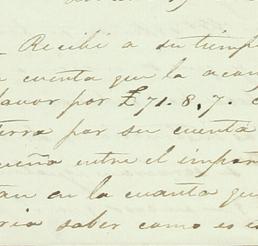 Recibi a su tiemp
cuenta que la acom
favor por £71.8.7.
erra por su cuenta
queña entre el impor
tan en la cuenta qu
ria saber como es e